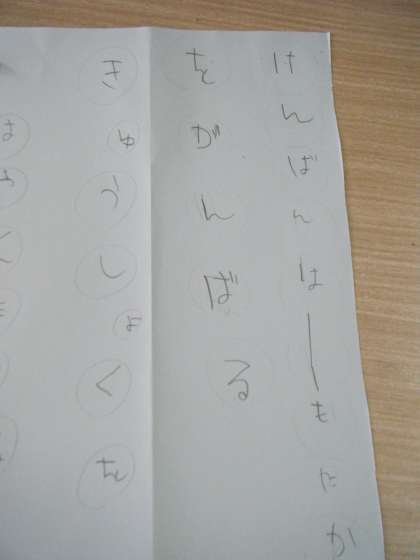 けんばんはーもにか
をがんばる
きゅうしょくを
はやく